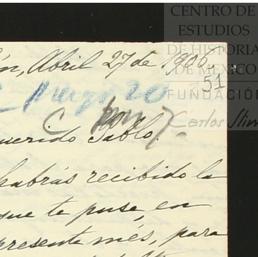 CENTRO DE
ESTUDIOS
DE HISTORIA
DE MÉXICO
FUNDACIÓN
Carlos Slim
ón, Abril 27 de 1900.
51
Mayo 20
uerido Pablo.
habrás recibido la
que te puse, en
presente mes, para